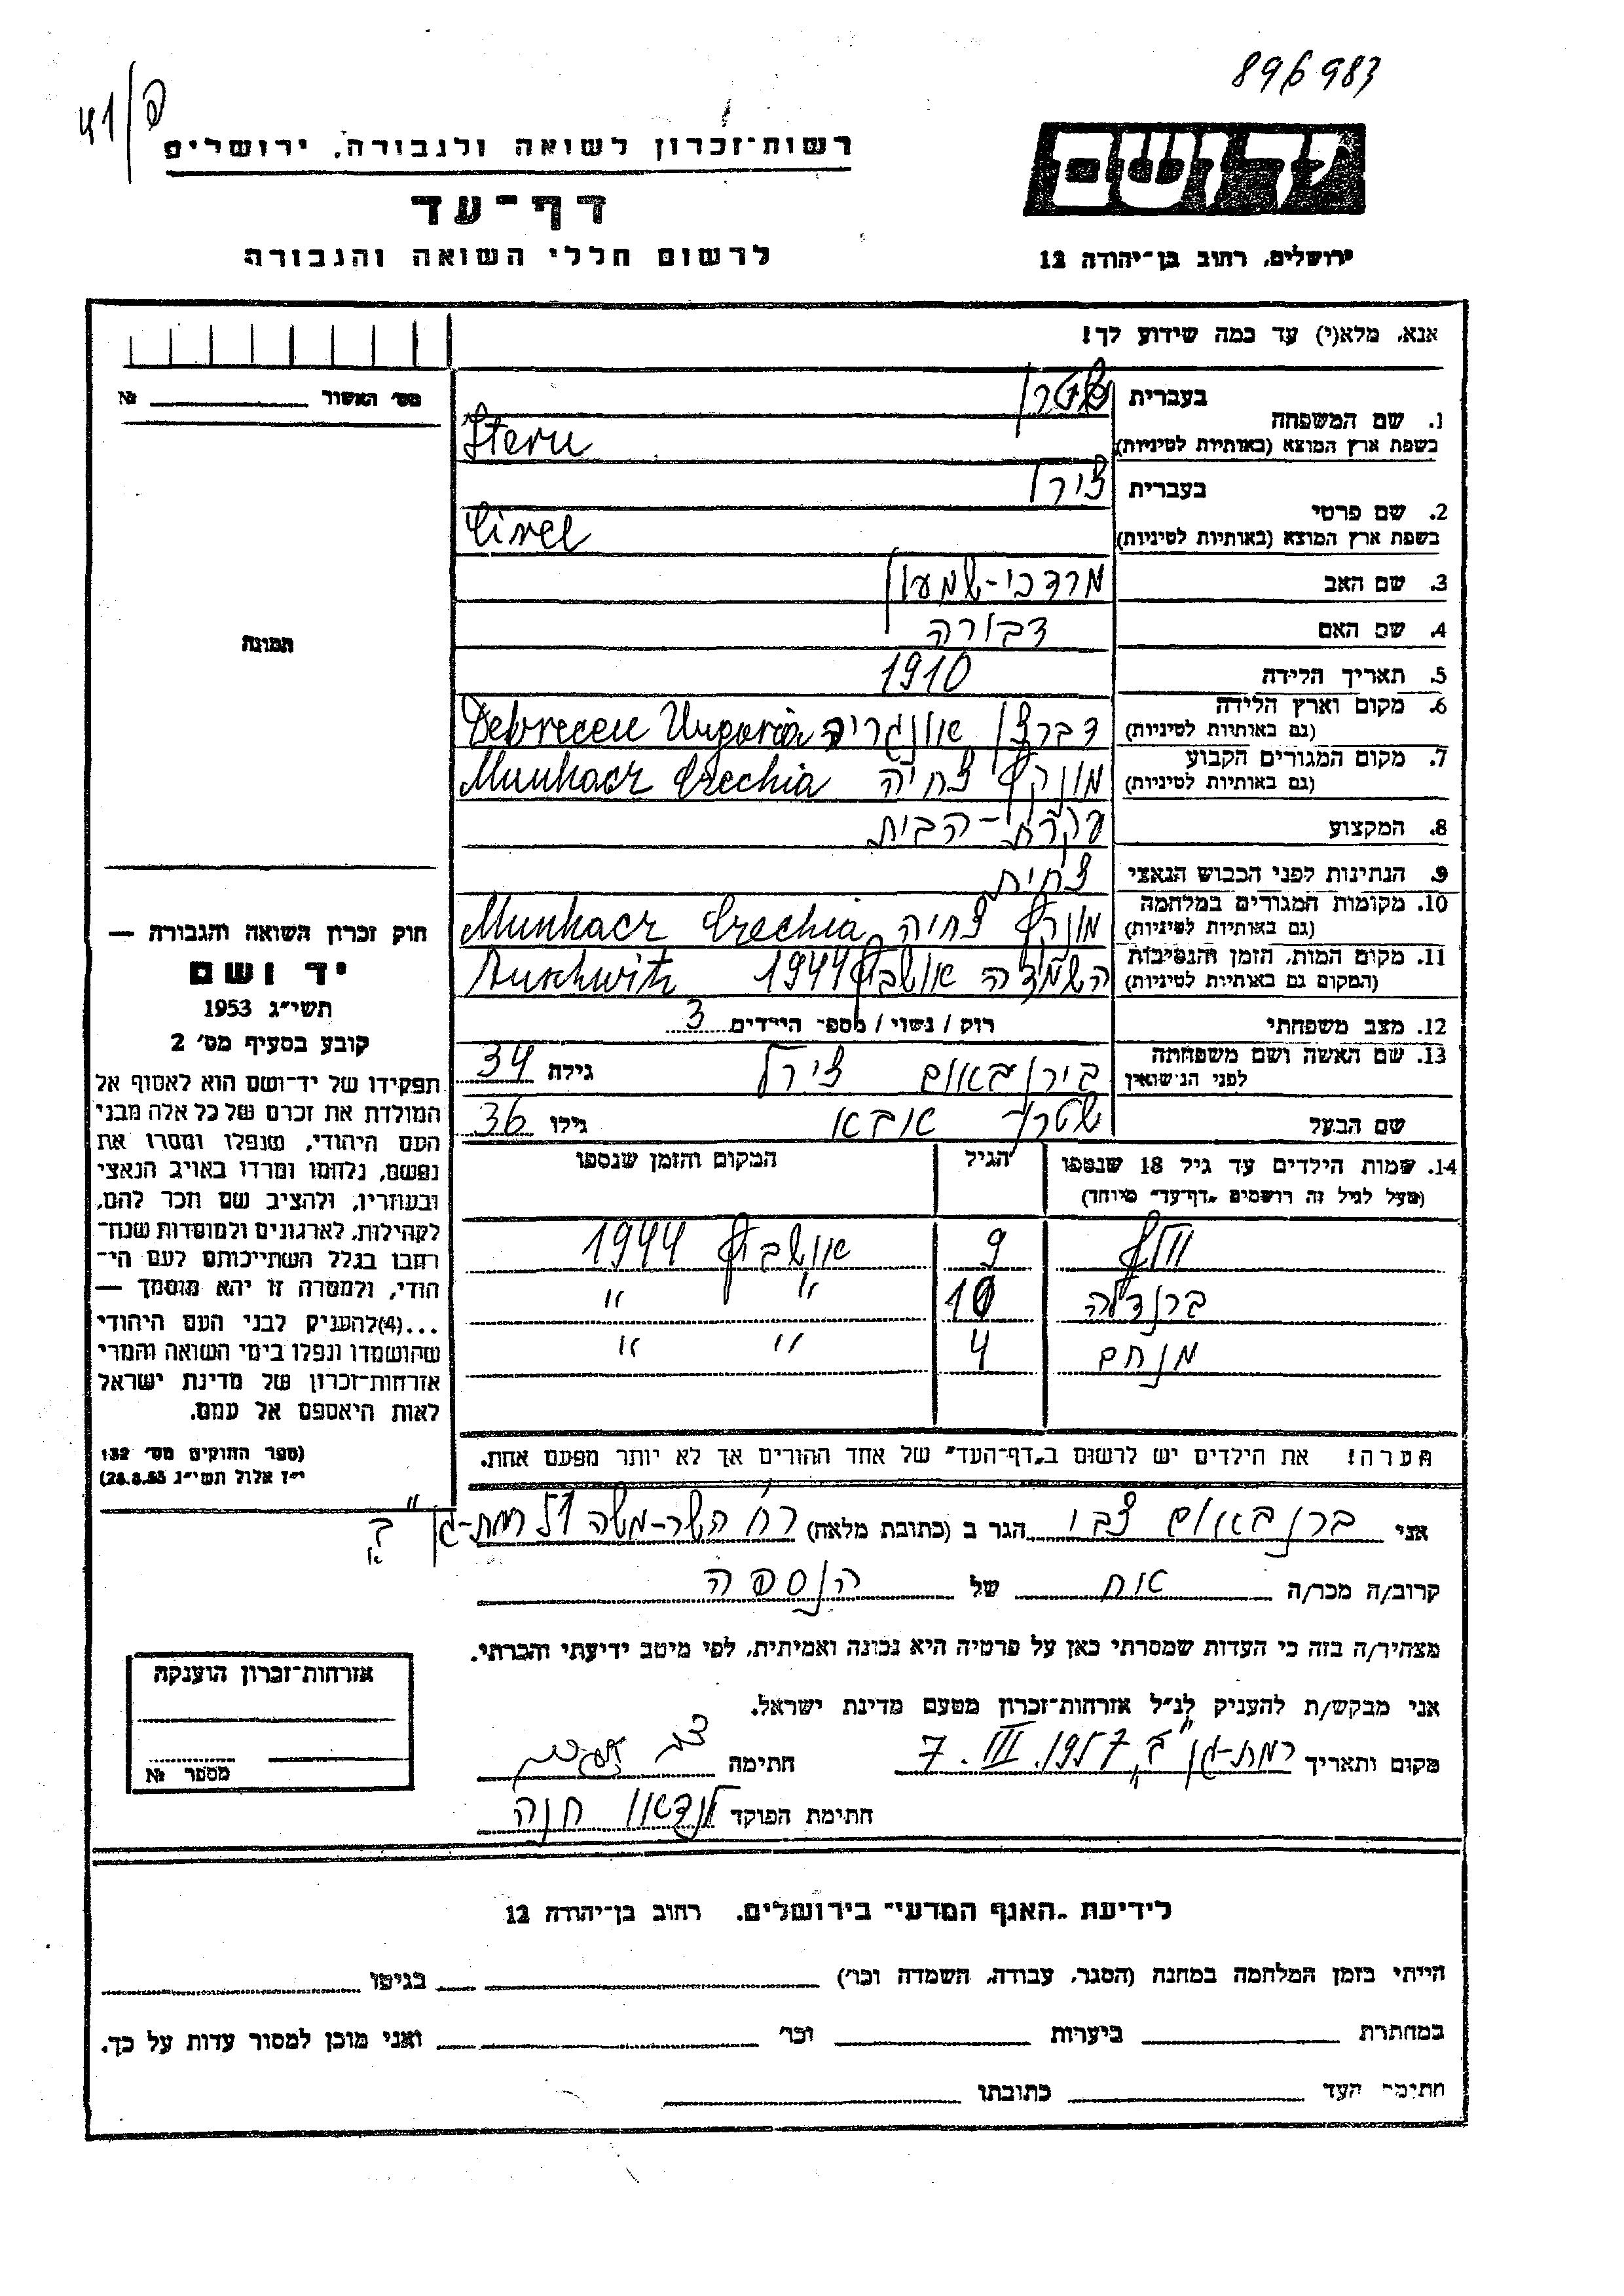 896983
41/פ
רשות־זכרון לשואה ולגבורה, ירושלים
דף־עד
לרשום חללי השואה והגבורה
יד ושם
ירושלים, רחוב בן־יהודה 12
אנא, מלא(י) עד כמה שידוע לך!
מס׳ האשור № 
1. שם המשפחה בעברית שטרן
בשפת ארץ המוצא (באותיות לטיניות) Stern
2. שם פרטי בעברית צירל
בשפת ארץ המוצא (באותיות לטיניות) Cirel
3. שם האב מרדכי-שמעון
4. שם האם דבורה
5. תאריך הלידה 1910
6. מקום וארץ הלידה (גם באותיות לטיניות) דברצן אונגריה Debrecen Ungaria
7. מקום המגורים הקבוע (גם באותיות לטיניות) מונקץ צחיה Munkacz Czechia
8. המקצוע עקרת-הבית
9. הנתינות לפני הכבוש הנאצי צחית
10. מקומות המגורים במלחמה (גם באותיות לטיניות) מונקץ צחיה Munkacz Czechia
11. מקום המות, הזמן והנסיבות (המקום גם באותיות לטיניות) השמדה אושביץ 1944 Auschwitz
12. מצב משפחתי רוק / נשוי / מספר הילדים 3
13. שם האשה ושם משפחתה לפני הנישואין בירנבאום צירל גילה 34
שם הבעל שטרן אבא גילו 36
14. שמות הילדים עד גיל 18 שנספו (מעל לגיל זה רושמים „דף־עד״ מיוחד) הגיל המקום והזמן שנספו
וולף 9 אושביץ 1944
ברנדלה 10 " "
מנחם 4 " "
הערה! את הילדים יש לרשום ב„דף־העד״ של אחד ההורים אך לא יותר מפעם אחת.
תמונה
חוק זכרון השואה והגבורה —
יד ושם
תשי״ג 1953
קובע בסעיף מס׳ 2
תפקידו של יד־ושם הוא לאסוף אל
המולדת את זכרם של כל אלה מבני
העם היהודי, שנפלו ומסרו את
נפשם, נלחמו ומרדו באויב הנאצי
ובעוזריו, ולהציב שם וזכר להם,
לקהילות, לארגונים ולמוסדות שנח־
רבו בגלל השתייכותם לעם הי־
הודי, ולמטרה זו יהא מוסמך —
...(4)להעניק לבני העם היהודי
שהושמדו ונפלו בימי השואה והמרי
אזרחות־זכרון של מדינת ישראל
לאות היאספם אל עמם.
(ספר החוקים מס׳ 132
י״ז אלול תשי״ג 28.8.53)
אני ברנבאום צבי הגר ב (כתובת מלאה) רח׳ השר-משה 51 רמת-גן ב׳
קרוב/ה מכר/ה אח של הנספה
מצהיר/ה בזה כי העדות שמסרתי כאן על פרטיה היא נכונה ואמיתית, לפי מיטב ידיעתי והכרתי.
אני מבקש/ת להעניק לנ״ל אזרחות־זכרון מטעם מדינת ישראל.
מקום ותאריך רמת-גן ב׳, 7. III. 1957 חתימה
חתימת הפוקד לנדאו חנה
אזרחות־זכרון הוענקה
מספר №
לידיעת „האגף המדעי״ בירושלים, רחוב בן־יהודה 12
הייתי בזמן המלחמה במחנה (הסגר, עבודה, השמדה וכו׳) בגיטו
במחתרת ביערות וכו׳ ואני מוכן למסור עדות על כך.
חתימת העד כתובתו